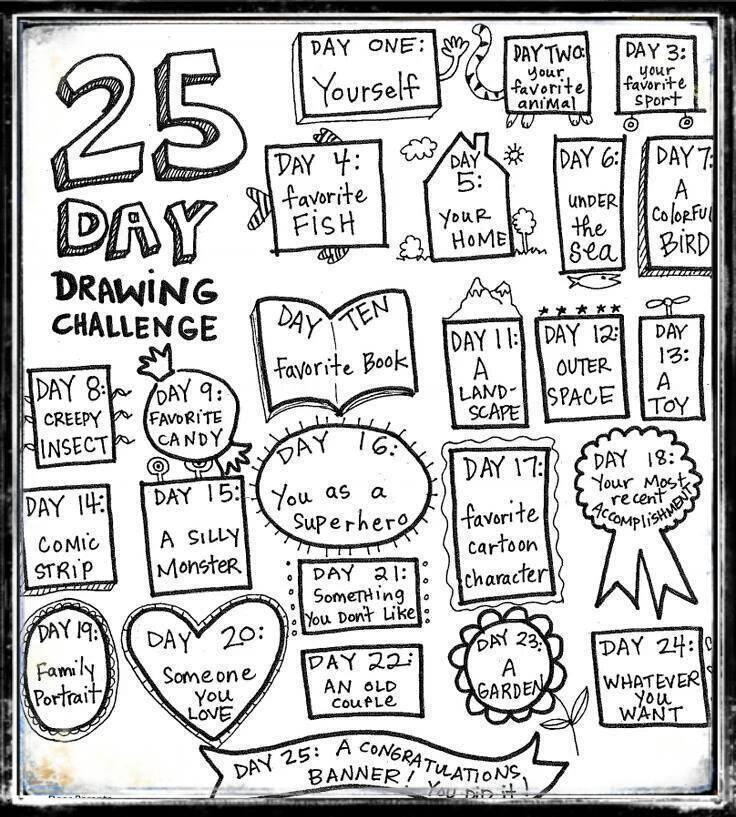 25
DAY
DRAWING
CHALLENGE
DAY ONE:
Yourself
DAY TWO:
your
favorite
animal
DAY 3:
your
favorite
SPORT
DAY 4:
favorite
FISH
DAY
5:
YOUR
HOME
DAY 6:
UNDER
the
sea
DAY 7:
A
COLORFUL
BIRD
DAY 8:
CREEPY
INSECT
DAY 9:
FAVORITE
CANDY
DAY TEN
Favorite Book
DAY 11:
A
LAND-
SCAPE
DAY 12:
OUTER
SPACE
DAY
13:
A
TOY
DAY 14:
COMIC
STRIP
DAY 15:
A SILLY
Monster
DAY 16:
You as a
Superhero
DAY 17:
favorite
cartoon
character
DAY 18:
Your Most
recent
ACCOMPLISHMENT
DAY 19:
Family
Portrait
DAY 20:
Someone
YOU
LOVE
DAY 21:
Something
You Don't Like
DAY 22:
AN OLD
COUPLE
DAY 23:
A
GARDEN
DAY 24:
WHATEVER
YOU
WANT
DAY 25: A CONGRATULATIONS
BANNER! YOU DID it!